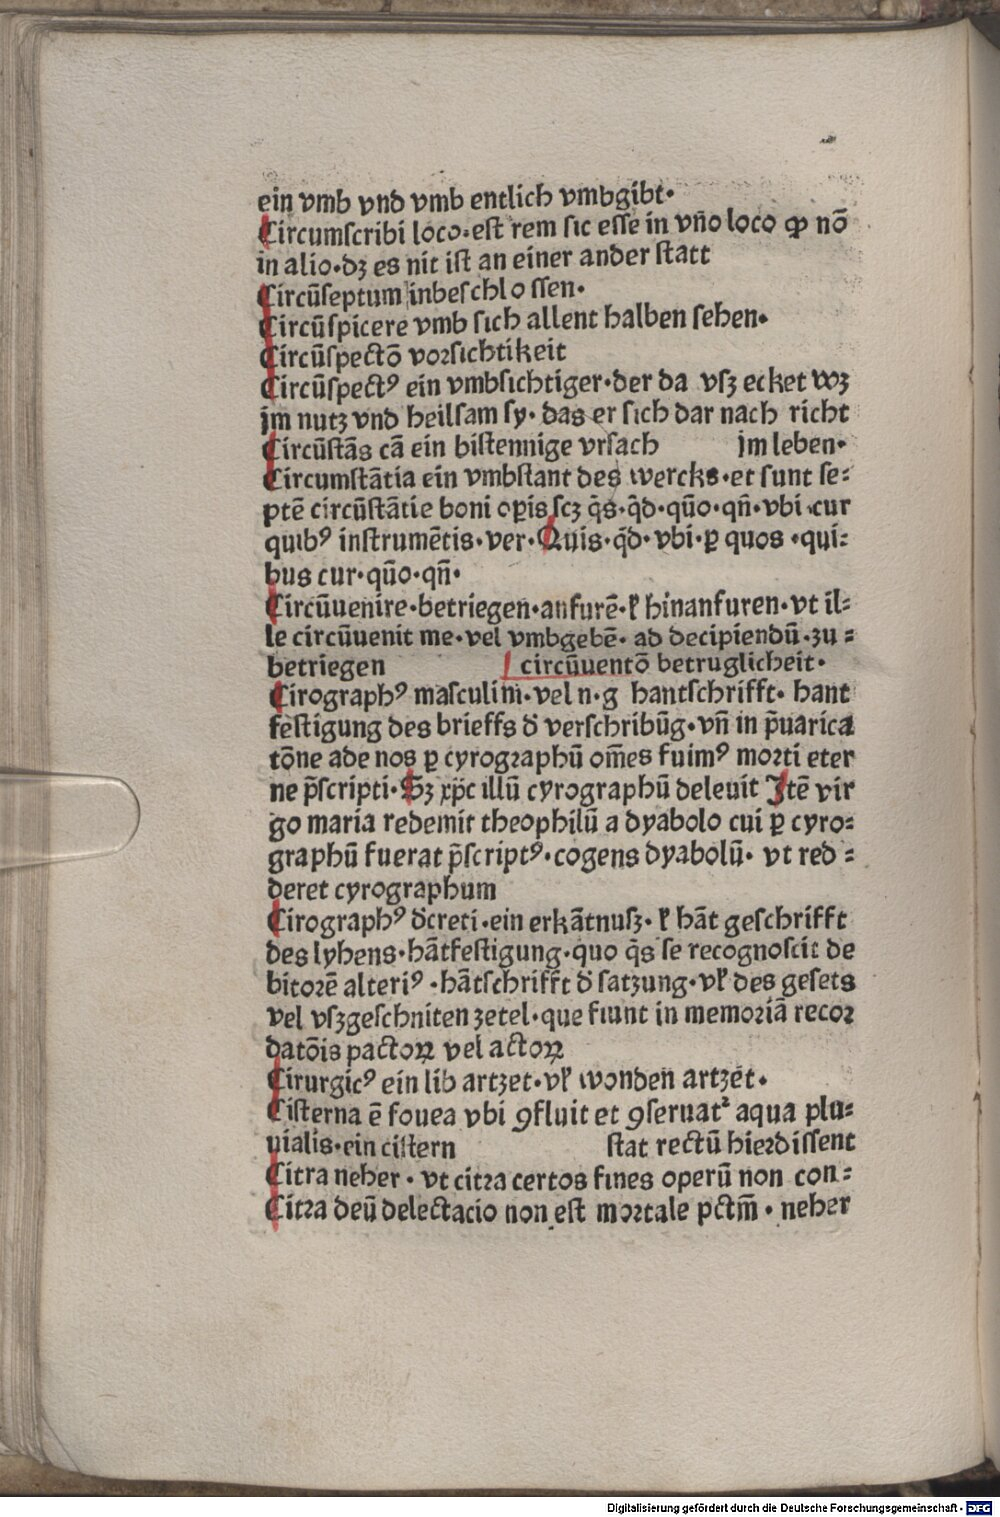 ein vmb vnd vmb entlich vmbgibt·
Circumscribi loco·est rem sic esse in vño loco ꝙ nō
in alio·dʒ es nit ist an einer ander statt
Circūseptum inbeschlossen·
Circūspicere vmb sich allent halben sehen·
Circūspectō vorsichtikeit
Circūspectꝰ ein vmbsichtiger·der da vsʒ ecket wʒ
jm nutʒ vnd heilsam sy· das er sich dar nach richt
Circūstās cā ein bistennige vrsach jm leben·
Circumstātia ein vmbstant des wercks·et sunt se⸗
ptē circūstātie boni oꝑis scʒ q̄s·q̄d·qūo·qñ·vbi·cur
quibꝰ instrumētis·ver·Quis·q̄d·vbi·ꝑ quos·qui⸗
bus cur·qūo·qñ·
Circūuenire·betriegen·anfurē·ꝉ hinanfuren·vt il⸗
le circūuenit me·vel vmbgebē· ad decipiendū·zu⸗
betriegen circūuentō betruglicheit·
Cirographꝰ masculini·vel n·g hantschrifft· hant
festigung des brieffs d̄ verschribūg·vñ in p̄uarica
tōne ade nos ꝑ cyrographū om̄es fuimꝰ morti eter
ne p̄scripti·Sʒ xp̄c illū cyrographū deleuit Jtē vir
go maria redemit theophilū a dyabolo cui ꝑ cyro⸗
graphū fuerat p̄scriptꝰ·cogens dyabolū· vt red⸗
deret cyrographum
Cirographꝰ dcreti·ein erkātnusʒ·ꝉ hāt geschrifft
des lyhens·hātfestigung·quo q̄s se recognoscit de
bitorē alteriꝰ·hātschrifft d̄ satʒung·vꝉ des gesets
vel vsʒgeschniten ʒetel·que fiunt in memoriā recor
datōis pactoꝝ vel actoꝝ
Cirurgicꝰ ein lib artʒet·vꝉ wonden artʒet·
Cisterna ē fouea vbi ꝯfluit et ꝯseruat᷑ aqua plu⸗
uialis·ein cistern stat rectū hierdissent
Citra neher·vt citra certos fines operū non con⸗
Citra deū delectacio non est mortale pctm̄·neher
Digitalisierung gefördert durch die Deutsche Forschungsgemeinschaft - DFG